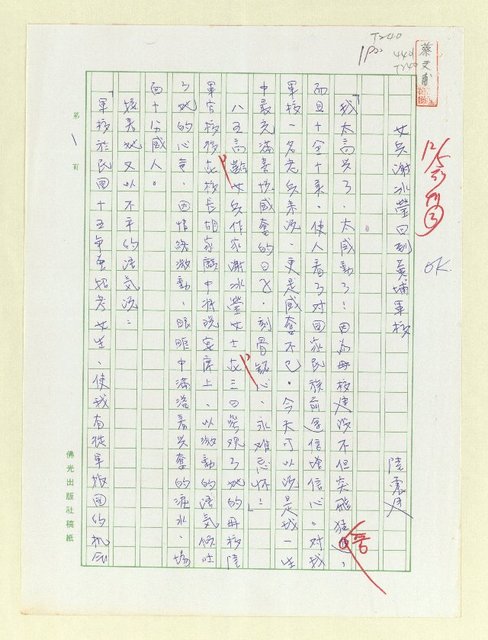 T240
440
T240
1P00
蔡文甫
12/5
OK
女兵謝冰瑩回到黃埔軍校
陸震廷
「我太高興了，太感動了！因為母校建設不但突飛猛進，
而且十全十美，使人看了對國家民族前途信增信心。對我
軍校一名老兵來說，更是感奮不已。今天可以說是我一生
中最充滿喜悅感奮的日子，刻骨銘心，永難忘懷！」
八五高齡女兵作家謝冰瑩女士在三日參觀了她的母校陸
軍官校校長胡家麒中將晚宴席上，以激動的語氣傾吐
了她的心聲，因情緒激動，眼眶中滿溢著興奮的淚水，場
面十分感人。
接著她又以不平的語氣說：
「軍校於民國十五年重招考女生，使我有從軍報國的機會
第1頁
佛光出版社稿紙